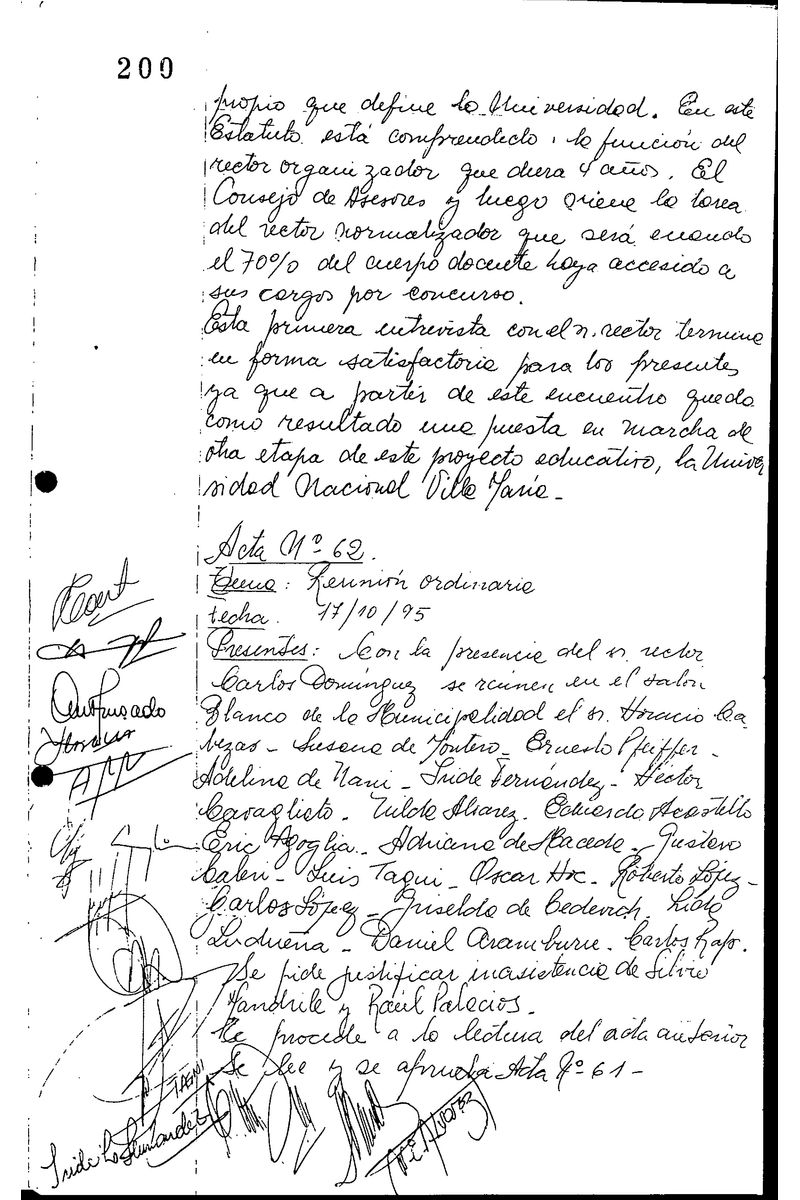 200
propio que define la Universidad. En este
Estatuto está comprendido, la función del
rector organizador que dura 4 años. El
Consejo de Asesores y luego viene la tarea
del rector normalizador que será cuando
el 70% del cuerpo docente haya accesido a
sus cargos por concurso.
Esta primera entrevista con el sr. rector termina
en forma satisfactoria para los presentes
ya que a partir de este encuentro queda
como resultado una puesta en marcha de
otra etapa de este proyecto educativo, la Univer
sidad Nacional Villa María_
Acta Nº 62.
Tema: Reunión ordinaria
Fecha. 17/10/95
Presentes: Con la presencia del sr. rector
Carlos Domínguez se reunen en el salón
Blanco de la Municipalidad el sr. Horacio Ca
bezas_ Susana de Montero_ Ernesto Pfeiffer_
Adelina de Nani_ Iride Fernández_ Héctor
Cavagliato. Tilda Alvarez. Eduardo Acastello
Eric Agoglia_ Adriana de Macedo_ Gustavo
Luis Tagni_ Oscar Hoc. Roberto López_
Carlos López_ Griselda de Lida
Ludueña_ Daniel Aramburu. Carlos
Se pide justificar inasistencia de Silvio
Mandrile y Raúl Palacios.
Se procede a la lectura del acta anterior
Se lee y se aprueba Acta Nº 61_
TAGNI
Iride Fernandez